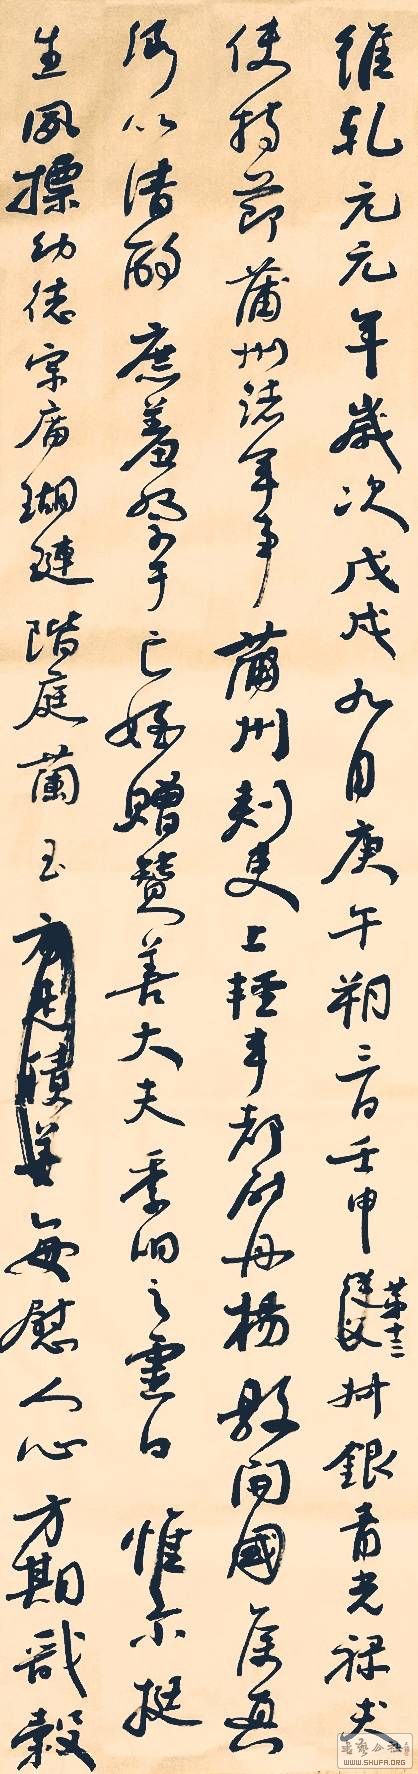 維乾元元年歲次戊戌九月庚午朔三日壬申
第十三
從父
叔銀青光祿夫
使持節蒲州諸軍事蒲州刺史上輕車都尉丹楊縣開國侯真
卿以清酌庶羞祭于亡姪贈贊善大夫季明之靈曰惟爾挺
生夙標幼德宗廟瑚璉階庭蘭玉
每慰人心方期戩穀
SHUFA.ORG
WWW.SHUFA.ORG